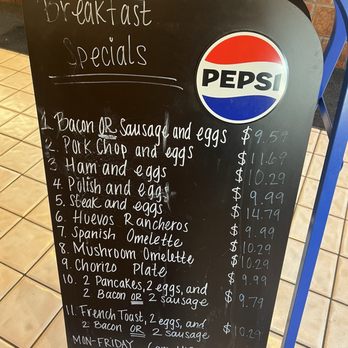 Breakfast
Specials
PEPSI
1. Bacon OR Sausage and eggs $9.59
2. Pork Chop and eggs $11.69
3. Ham and eggs $10.29
4. Polish and eggs $9.99
5. Steak and eggs $14.79
6. Huevos Rancheros $9.99
7. Spanish Omelette $10.29
8. Mushroom Omelette $10.29
9. Chorizo Plate $9.99
10. 2 Pancakes, 2 eggs, and
2 Bacon OR 2 Sausage $9.79
11. French Toast, 2 eggs, and
2 Bacon OR 2 Sausage $10.29
MON-FRIDAY